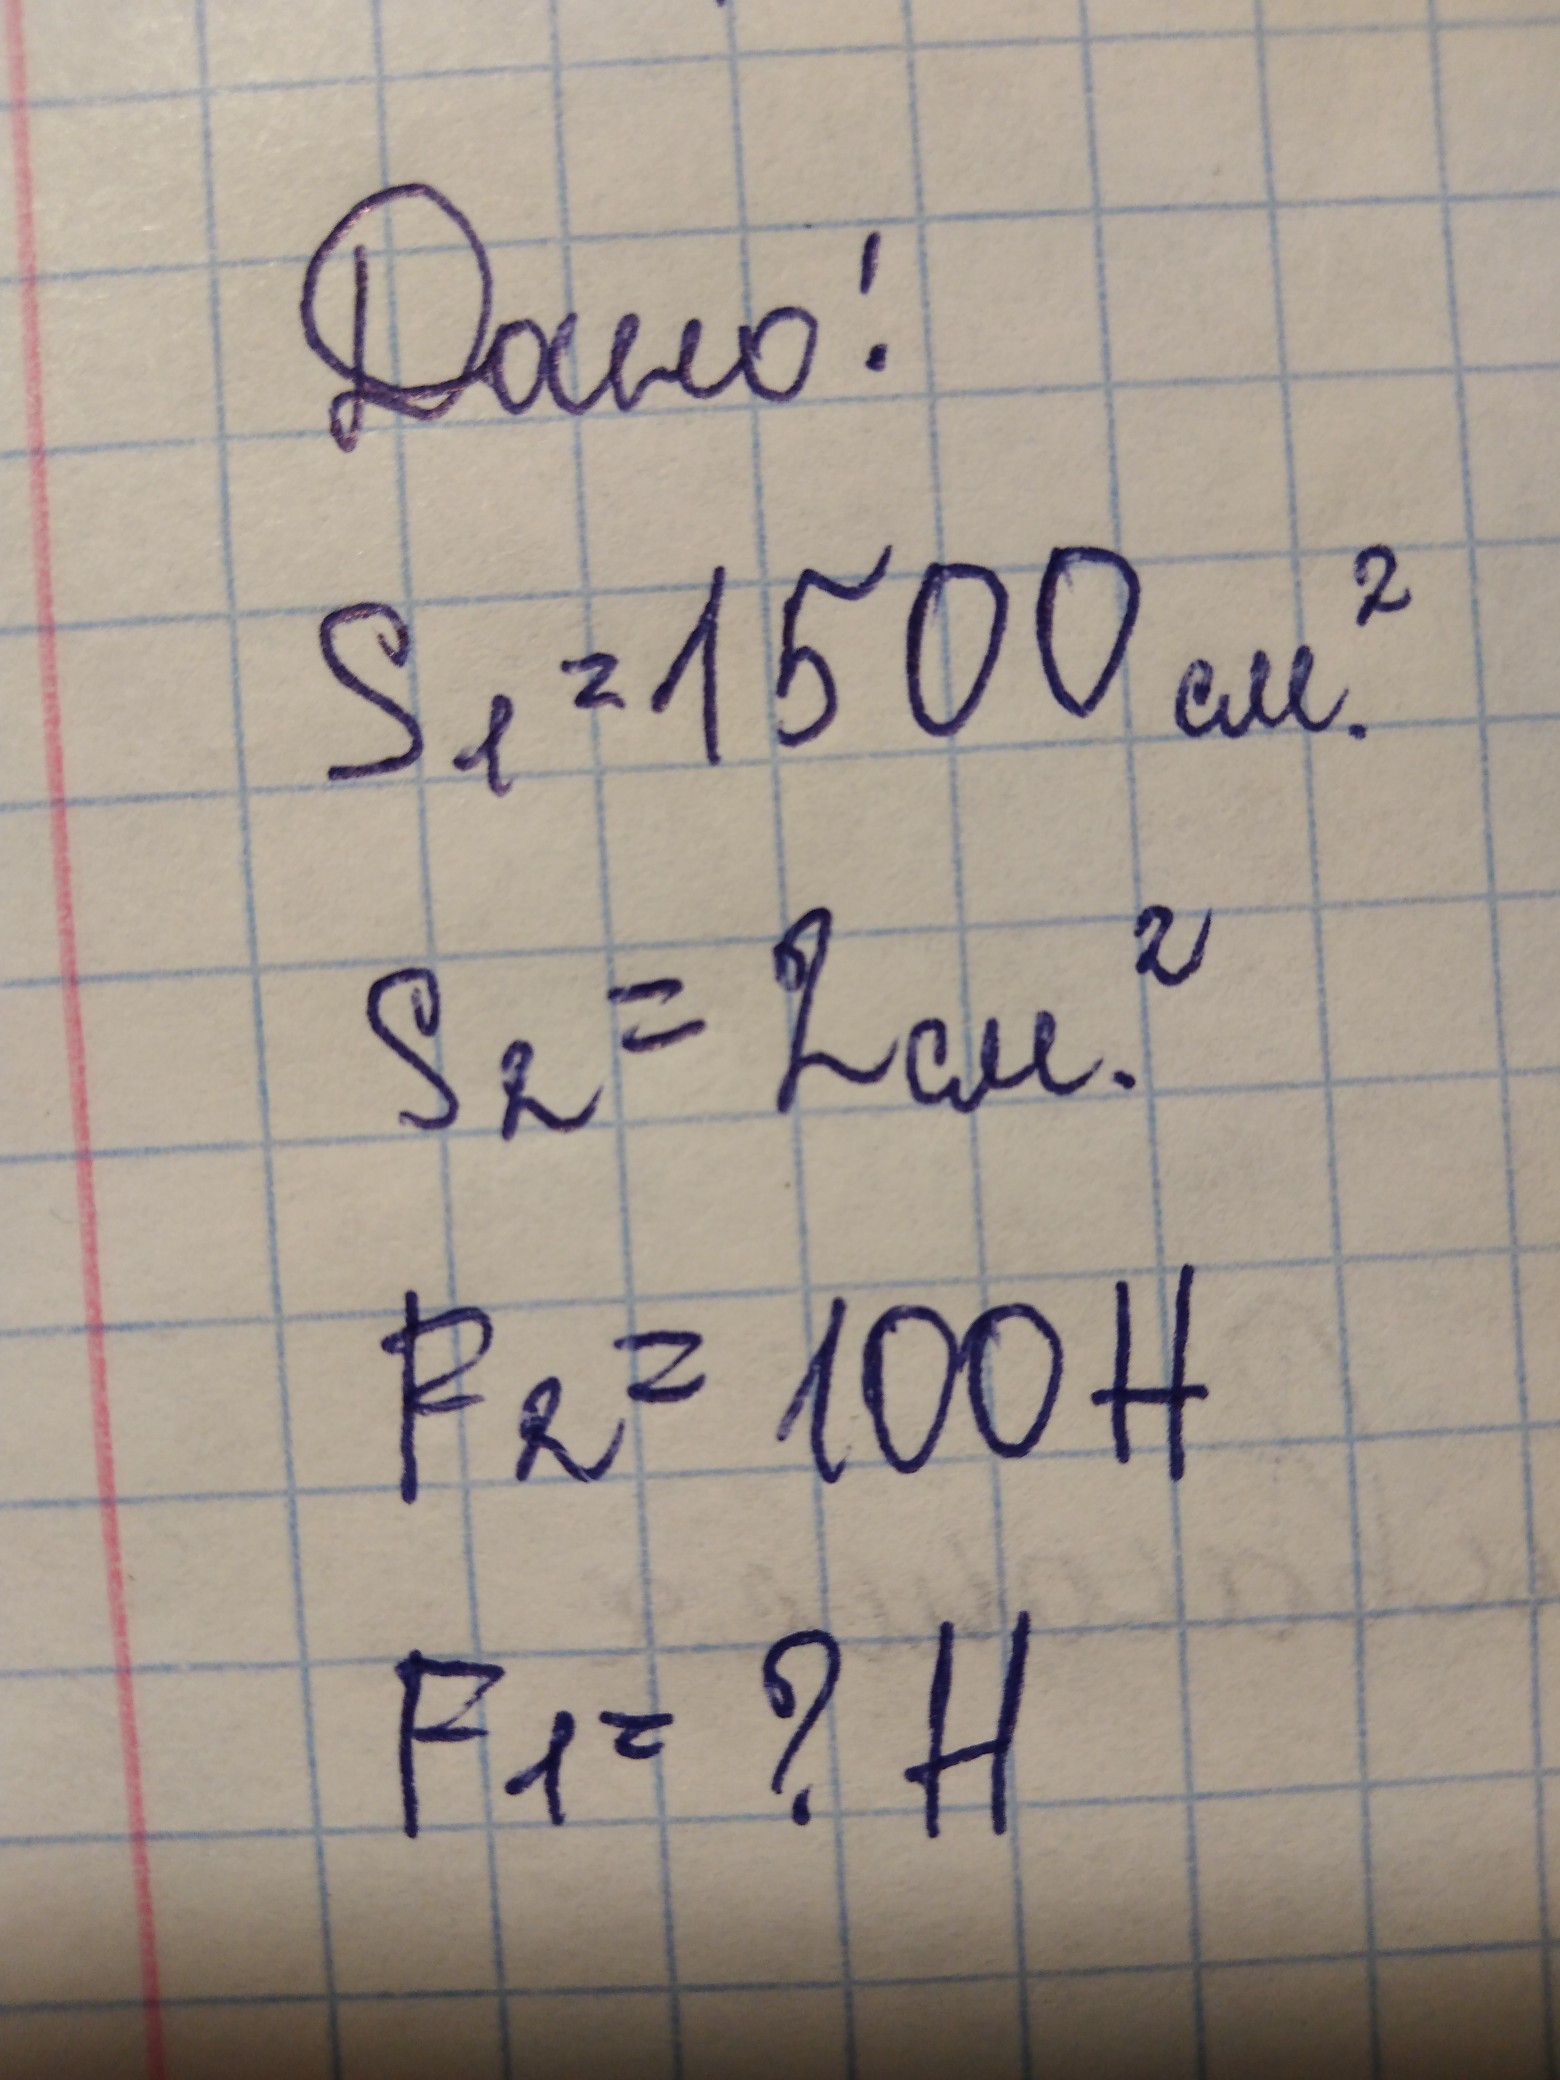 Дано!
S₁=1500 см.²
S₂=2 см.²
F₂=100 Н
F₁=? Н